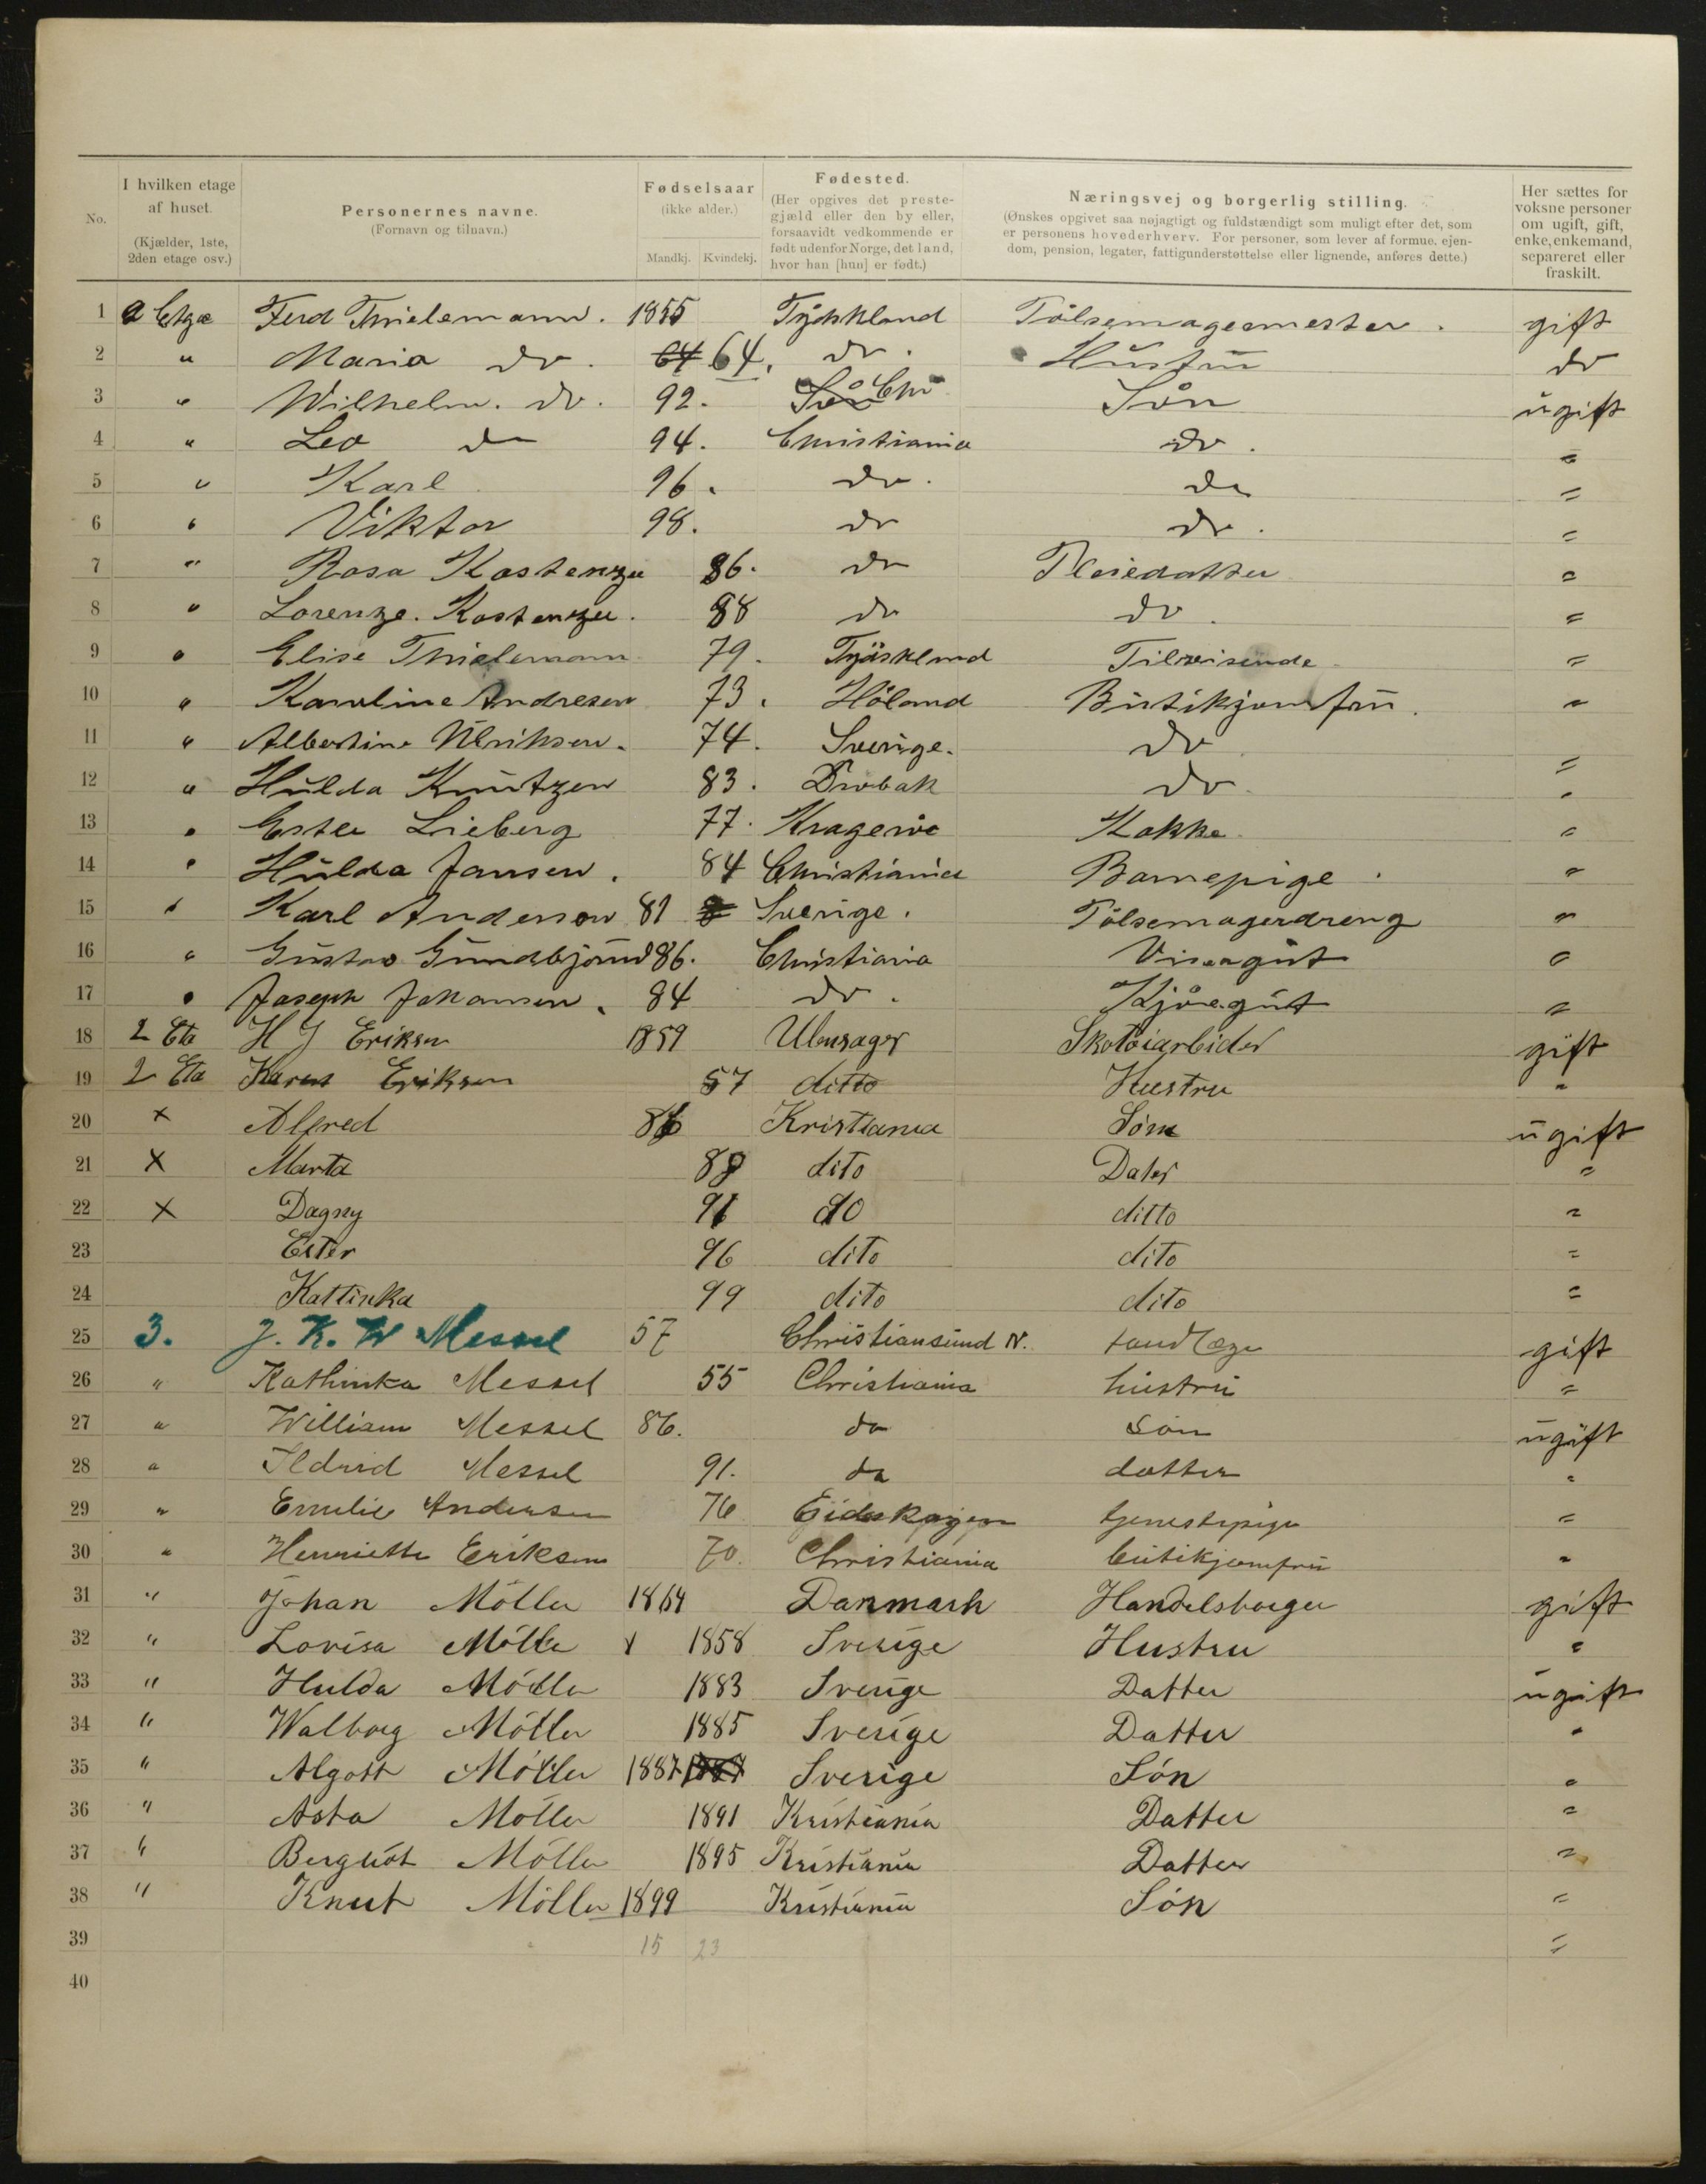 No.
I hvilken etage af huset. (Kjælder, 1ste, 2den etage osv.)
Personernes navne. (Fornavn og tilnavn.)
Fødselsaar (ikke alder.) Mandkj. Kvindekj.
Fødested. (Her opgives det prestegjæld eller den by eller, forsaavidt vedkommende er født udenfor Norge, det land, hvor han [hun] er født.)
Næringsvej og borgerlig stilling. (Ønskes opgivet saa nøjagtigt og fuldstændigt som muligt efter det, som er personens hovederhverv. For personer, som lever af formue, ejendom, pension, legater, fattigunderstøttelse eller lignende, anføres dette.)
Her sættes for voksne personer om ugift, gift, enke, enkemand, separeret eller fraskilt.
1 2 Etge Ferd Thielemann. 1855 Tydskland Pölsemagermester. gift
2 " Maria do. 64 64. do. Hustru do
3 " Wilhelm. do. 92. Chr Sön ugift
4 " Leo do 94. Christiania do. "
5 " Karl 96. do. do "
6 " Viktor 98. do do. "
7 " Rosa Kostenzer 86. do Pleiedatter "
8 " Lorenze. Kostenzer. 88 do do. "
9 " Elise Thielemann 79. Tydskland Tilreisende "
10 " Karoline Andresen 73. Höland Butikjomfru. "
11 " Albertine Ulriksen. 74. Sverige. do "
12 " Hulda Knutzen 83. Drobak do "
13 " Ester Lieberg 77. Kragerøe Kokke "
14 " Hulda Jansen. 84 Christiania Barnepige. "
15 " Karl Anderson 81 Sverige. Pölsemagerdreng "
16 " Gustav Gundbjörnd 86. Christiania Visergut "
17 " Joseph Johansen. 84 do. Kjöregut "
18 2 Eta H J Eriksen 1859 Ulensager Skotöiarbider gift
19 2 Eta Karen Eriksen 57 ditto Hustru "
20 x Alfred 86 Kristiania Sön ugift
21 x Marta 88 dito Dater "
22 x Dagny 91 do ditto "
23 Ester 96 dito dito "
24 Kattinka 99 dito dito "
25 3. J. K. W Messel 57 Christiansund N. tandlæge gift
26 " Kathinka Messel 55 Christiania hustru "
27 " William Messel 86. do sön ugift
28 " Ildrid Messel 91. do datter "
29 " Emilie Andersen 76 Eidskogen tjenestepige "
30 " Henriette Eriksen 70. Christiania butikjomfru "
31 " Johan Möller 1864 Danmark Handelsborger gift
32 " Lovisa Möller 1858 Sverige Hustru "
33 " Hulda Möller 1883 Sverige Datter ugift
34 " Walborg Möller 1885 Sverige Datter "
35 " Algott Möller 1887 1887 Sverige Sön "
36 " Asta Möller 1891 Kristiania Datter "
37 " Bergliöt Möller 1895 Kristiania Datter "
38 " Knut Möller 1899 Kristiania Sön "
39 15 23 "
40